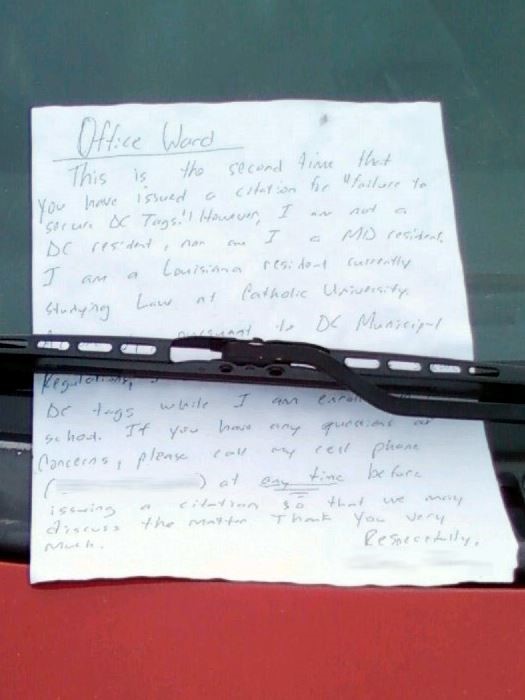 Office Ward
This is the second time that
you have issued a citation for "failure to
secure DC Tags." However, I am not a
DC resident, nor am I a MD resident.
I am a Louisiana resident currently
studying Law at Catholic University.
pursuant to DC Municipal
Regulations,
DC tags while I am
school. If you have any questions or
Concerns, please call my cell phone
( ) at any time before
issuing a citation so that we may
discuss the matter Thank You very
much.
Respectfully,